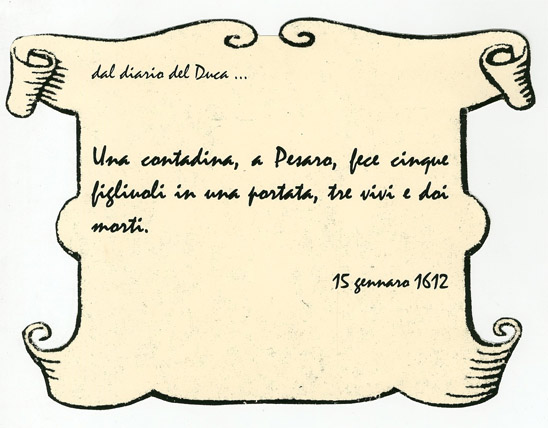 dal diario del Duca ...
Una contadina, a Pesaro, fece cinque
figliuoli in una portata, tre vivi e doi
morti.
15 gennaro 1612